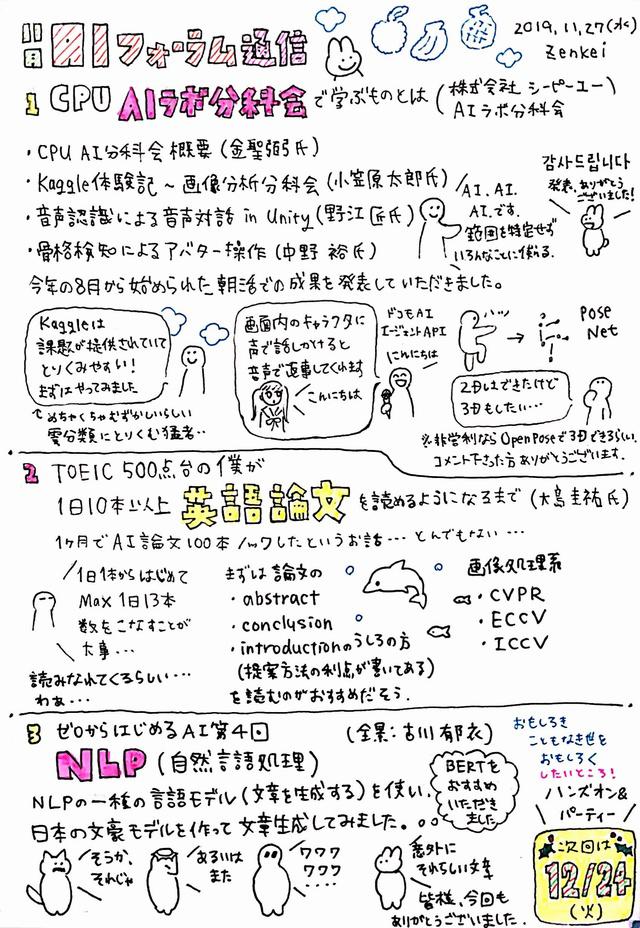 11月 AIフォーラム通信
2019.11.27(水)
Zenkei
1 CPU AIラボ分科会で学ぶものとは(株式会社 シーピーユー)
AIラボ分科会
・CPU AI分科会 概要(金聖弼氏)
・Kaggle体験記～画像分析分科会(小笠原太郎氏)
・音声認識による音声対話 in Unity(野江 匠氏)
・骨格検知によるアバター操作(中野 裕氏)
감사드립니다
発表、ありがとう
ございました!
AI、AI.
AI.です.
範囲を特定せず
いろんなことに使える.
今年の8月から始められた朝活での成果を発表していただきました。
Kaggleは
課題が提供されていて
とりくみやすい!
まずはやってみました
めちゃくちゃむずかしいらしい
雲分類にとりくむ猛者‥
画面内のキャラクタに
声で話しかけると
音声で返事してくれます
こんにちは
ドコモAI
エージェントAPI
にんにちは
ハッ
Pose
Net
2Dはできたけど
3Dもしたい…
※非営利ならOpenPoseで3Dできるらしい.
コメント下さった方ありがとうございます.
2 TOEIC 500点台の僕が
1日10本以上 英語論文を読めるようになるまで(大島圭祐氏)
1ヶ月でAI論文100本ノックしたというお話…とんでもない…
1日1本からはじめて
Max 1日13本
数をこなすことが
大事…
読みなれてくるらしい…
わぁ…
まずは論文の
・abstract
・conclusion
・introductionのうしろの方
(提案方法の利点が書いてある)
を読むのがおすすめだそう.
画像処理系
・CVPR
・ECCV
・ICCV
3 ゼロからはじめるAI第4回 (全景:古川 郁衣)
NLP(自然言語処理)
NLPの一種の言語モデル(文章を生成する)を使い,
日本の文豪モデルを作って文章生成してみました.
BERTを
おすすめ
いただき
ました
おもしろき
こともなき世を
おもしろく
したいところ!
ハンズオン&
パーティー
次回は
12/24
(火)
そうか、
それじゃ
あるいは
また
ワワワ
ワワワ
‥‥
意外に
それらしい文章
皆様、今回も
ありがとうございました.